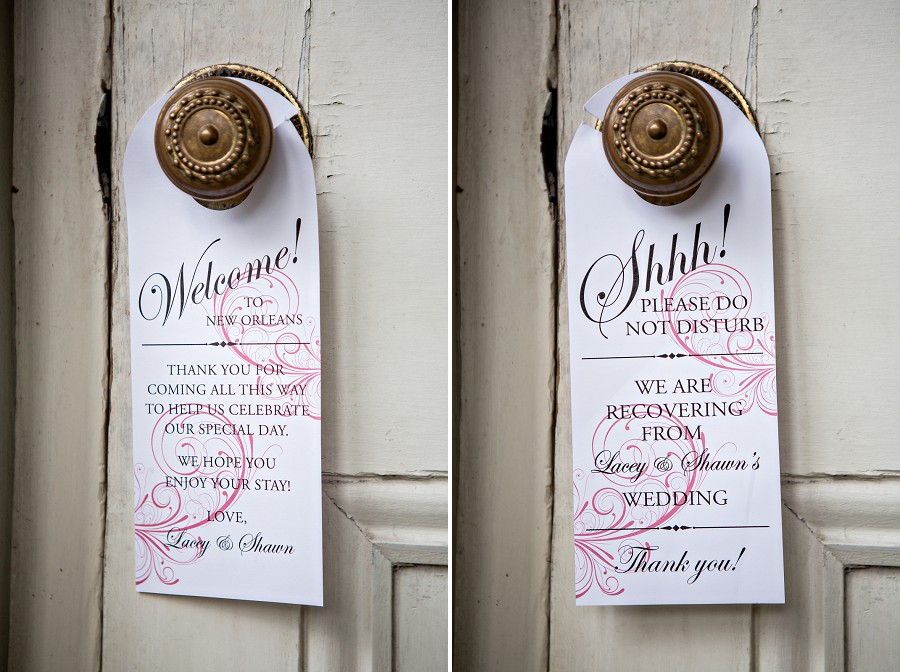 Welcome!
TO
NEW ORLEANS
THANK YOU FOR
COMING ALL THIS WAY
TO HELP US CELEBRATE
OUR SPECIAL DAY.
WE HOPE YOU
ENJOY YOUR STAY!
LOVE,
Lacey & Shawn
Shhh!
PLEASE DO
NOT DISTURB
WE ARE
RECOVERING
FROM
Lacey & Shawn's
WEDDING
Thank you!